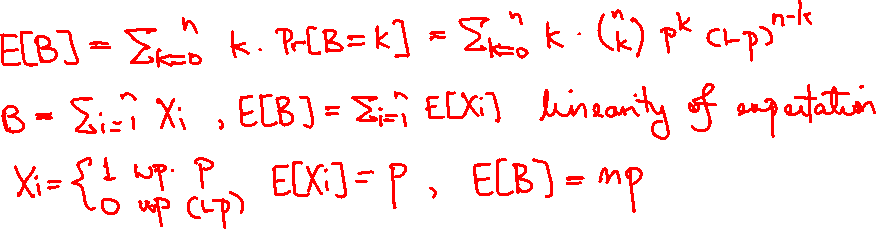 E[B] = Σ_{k=0}^{n} k · Pr[B=k] = Σ_{k=0}^{n} k · (n k) p^k (1-p)^{n-k}
B = Σ_{i=1}^{n} Xi , E[B] = Σ_{i=1}^{n} E[Xi] linearity of expectation
Xi = { 1 wp. p 0 wp (1-p) E[Xi] = p , E[B] = np